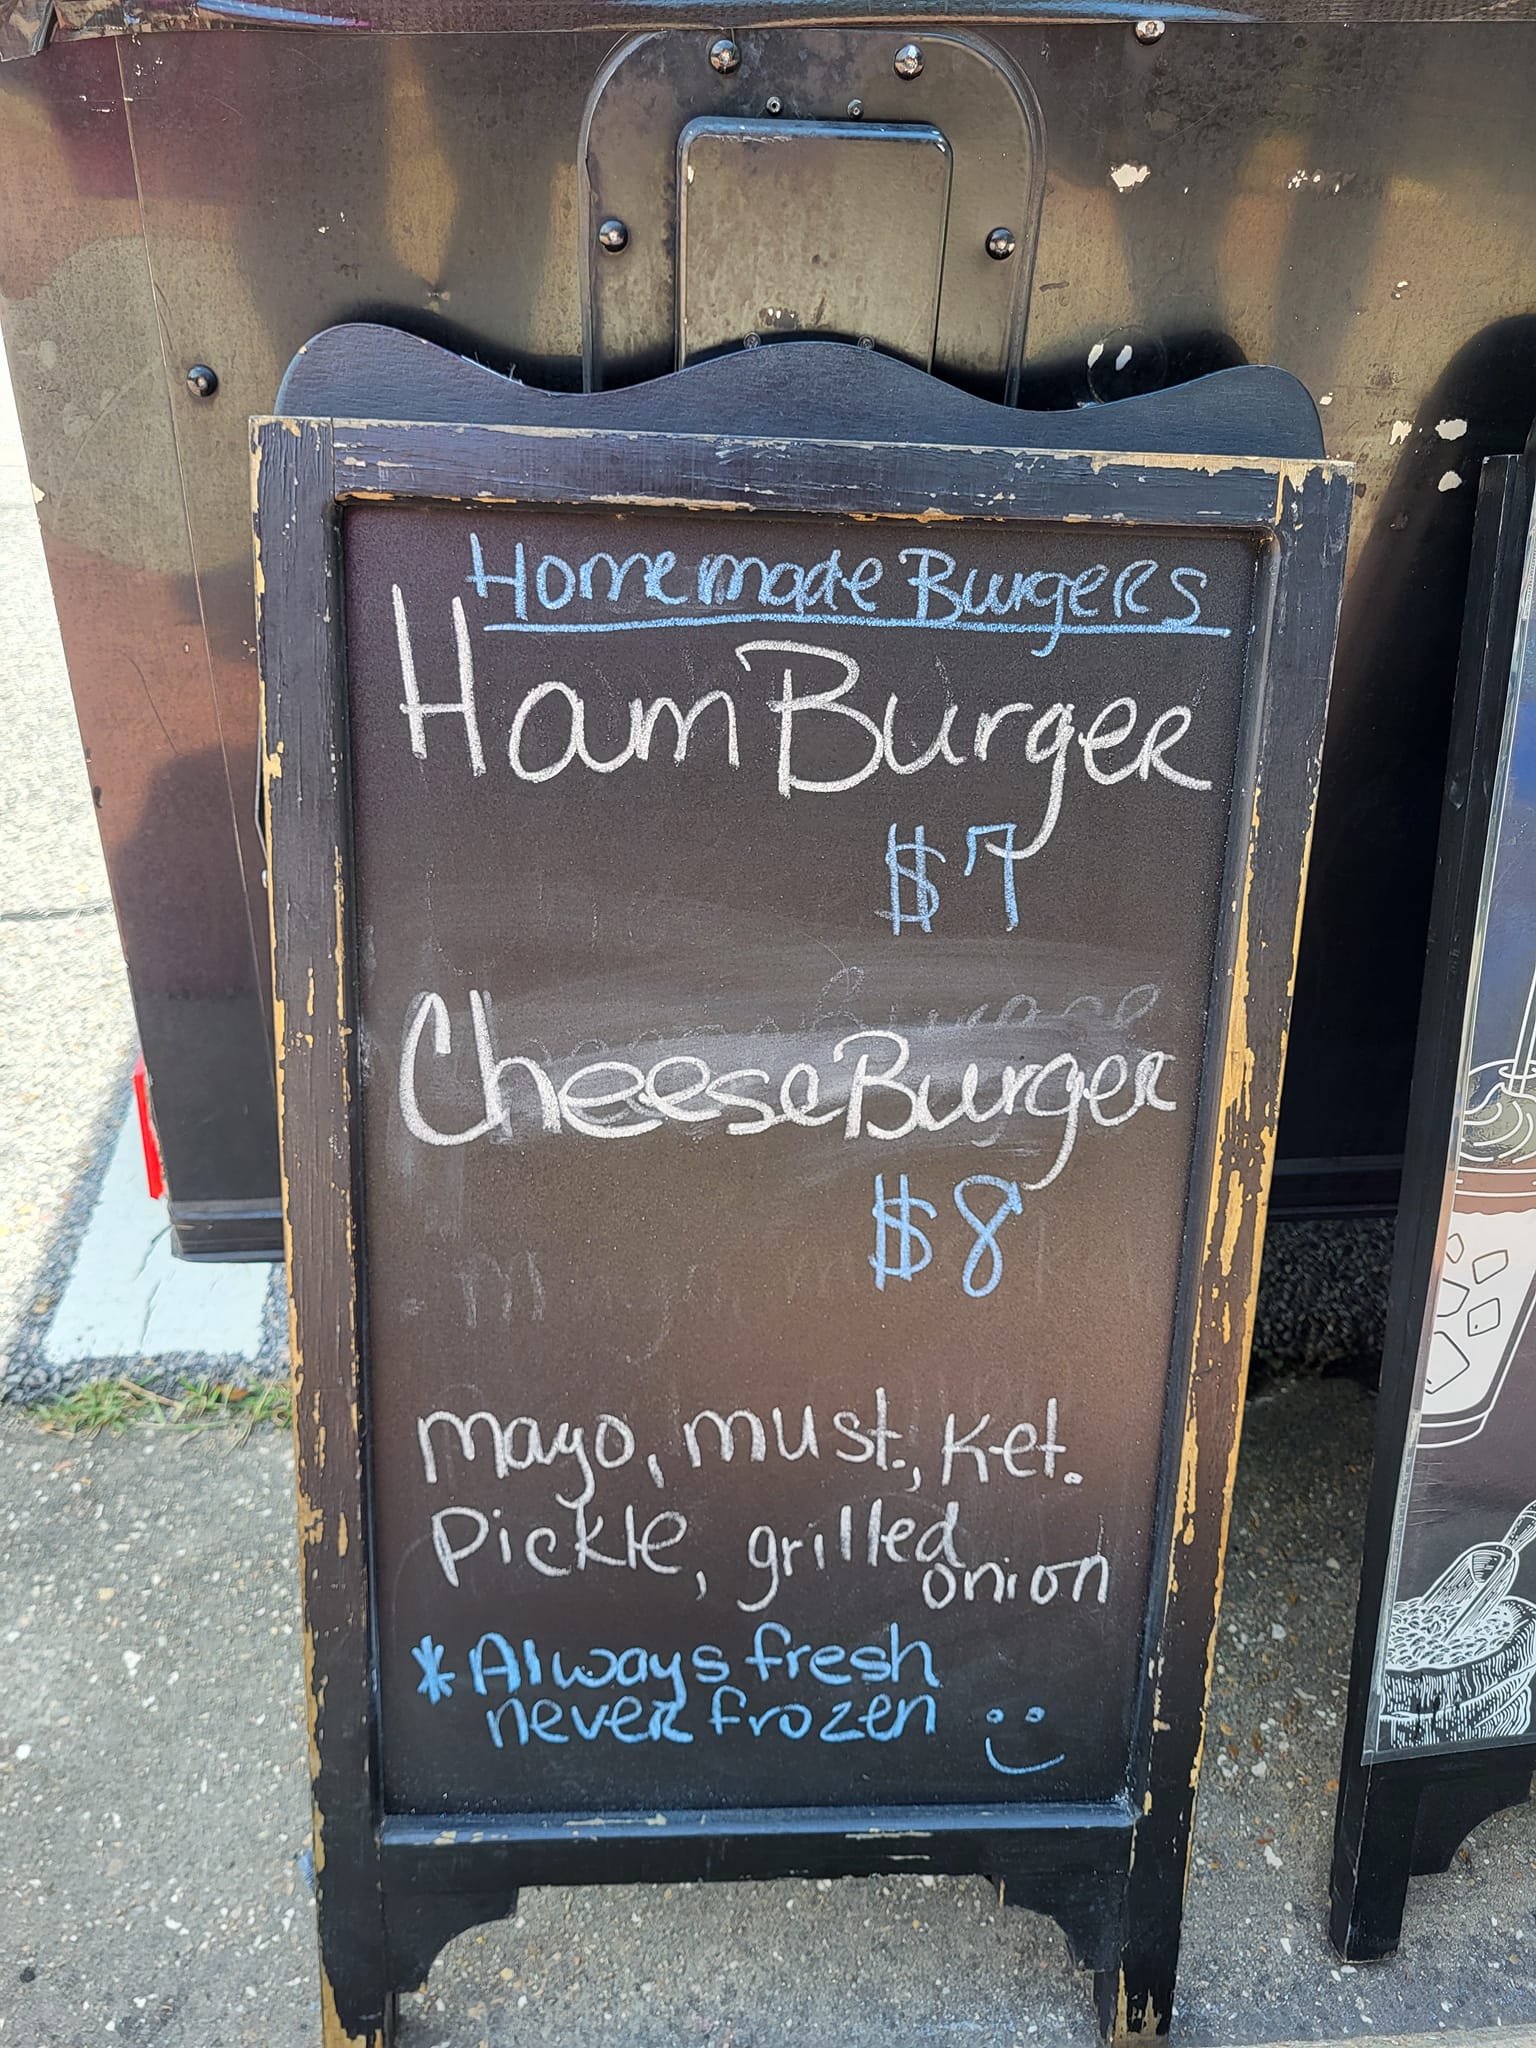 Homemade Burgers
HamBurger
$7
CheeseBurger
$8
mayo, must., Ket.
Pickle, grilled
onion
*Always fresh
never frozen